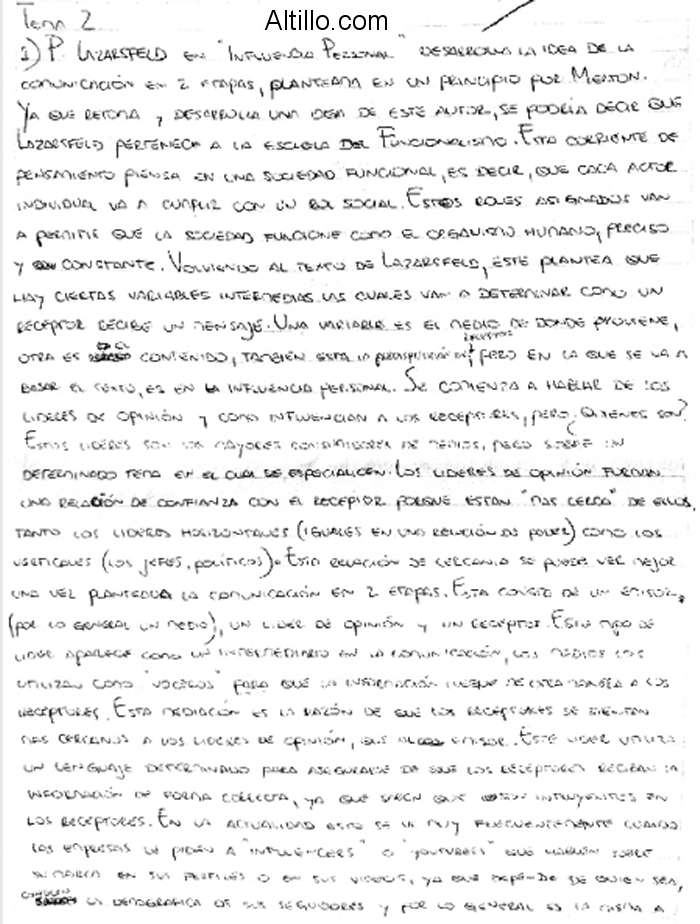 Altillo.com
Tema 2
1) P. LAZARSFELD EN "INFLUENCIA PERSONAL" DESARROLLA LA IDEA DE LA
COMUNICACIÓN EN 2 ETAPAS, PLANTEADA EN UN PRINCIPIO POR MERTON.
YA QUE RETOMA Y DESARROLLA UNA IDEA DE ESTE AUTOR, SE PODRÍA DECIR QUE
LAZARSFELD PERTENECE A LA ESCUELA DEL FUNCIONALISMO. ESTA CORRIENTE DE
PENSAMIENTO PIENSA EN UNA SOCIEDAD FUNCIONAL, ES DECIR, QUE CADA ACTOR
INDIVIDUAL VA A CUMPLIR CON UN ROL SOCIAL. ESTOS ROLES ASIGNADOS VAN
A PERMITIR QUE LA SOCIEDAD FUNCIONE COMO EL ORGANISMO HUMANO, PRECISO
Y CONSTANTE. VOLVIENDO AL TEXTO DE LAZARSFELD, ESTE PLANTEA QUE
HAY CIERTAS VARIABLES INTERMEDIAS LAS CUALES VAN A DETERMINAR COMO UN
RECEPTOR RECIBE UN MENSAJE. UNA VARIABLE ES EL MEDIO DE DONDE PROVIENE,
OTRA ES EL CONTENIDO, TAMBIÉN ESTA LA PREDISPOSICIÓN PERO EN LA QUE SE VA A
BASAR EL TEXTO, ES EN LA INFLUENCIA PERSONAL. SE COMIENZA A HABLAR DE LOS
LIDERES DE OPINIÓN Y COMO INFLUENCIAN A LOS RECEPTORES, PERO ¿QUIENES SON?
ESTOS LIDERES SON LOS MAYORES CONSUMIDORES DE MEDIOS, PERO SOBRE UN
DETERMINADO TEMA EN EL CUAL SE ESPECIALICEN. LOS LIDERES DE OPINIÓN FORMAN
UNA RELACIÓN DE CONFIANZA CON EL RECEPTOR PORQUE ESTAN "MAS CERCA" DE ELLOS,
TANTO LOS LIDERES HORIZONTALES (IGUALES EN UNA RELACIÓN DE PODER) COMO LOS
VERTICALES (LOS JEFES, POLÍTICOS). ESTA RELACIÓN DE CERCANIA SE PUEDE VER MEJOR
UNA VEZ PLANTEADA LA COMUNICACIÓN EN 2 ETAPAS. ESTA CONSTA DE UN EMISOR,
(POR LO GENERAL UN MEDIO), UN LIDER DE OPINIÓN Y UN RECEPTOR. ESTE TIPO DE
LIDER APARECE COMO UN INTERMEDIARIO EN LA COMUNICACIÓN, LOS MEDIOS LOS
UTILIZAN COMO "VOCEROS" PARA QUE LA INFORMACIÓN LLEGUE DE OTRA MANERA A LOS
RECEPTORES. ESTA MEDIACIÓN ES LA RAZÓN DE QUE LOS RECEPTORES SE SIENTAN
MAS CERCANOS A LOS LIDERES DE OPINIÓN, QUE AL EMISOR. ESTE LIDER UTILIZA
UN LENGUAJE DETERMINADO PARA ASEGURARSE DE QUE LOS RECEPTORES RECIBAN LA
INFORMACIÓN DE FORMA CORRECTA, YA QUE SABEN QUE INFLUYENTES EN
LOS RECEPTORES. EN LA ACTUALIDAD ESTO SE VE MUY FRECUENTEMENTE CUANDO
LAS EMPRESAS LE PIDEN A "INFLUENCERS" O "YOUTUBERS" QUE HABLEN SOBRE
SU MARCA EN SUS PERFILES O EN SUS VIDEOS, YA QUE DEPENDE DE QUIEN SEA,
CONOCEN LA DEMOGRAFICA DE SUS SEGUIDORES Y POR LO GENERAL ES LA MISMA A